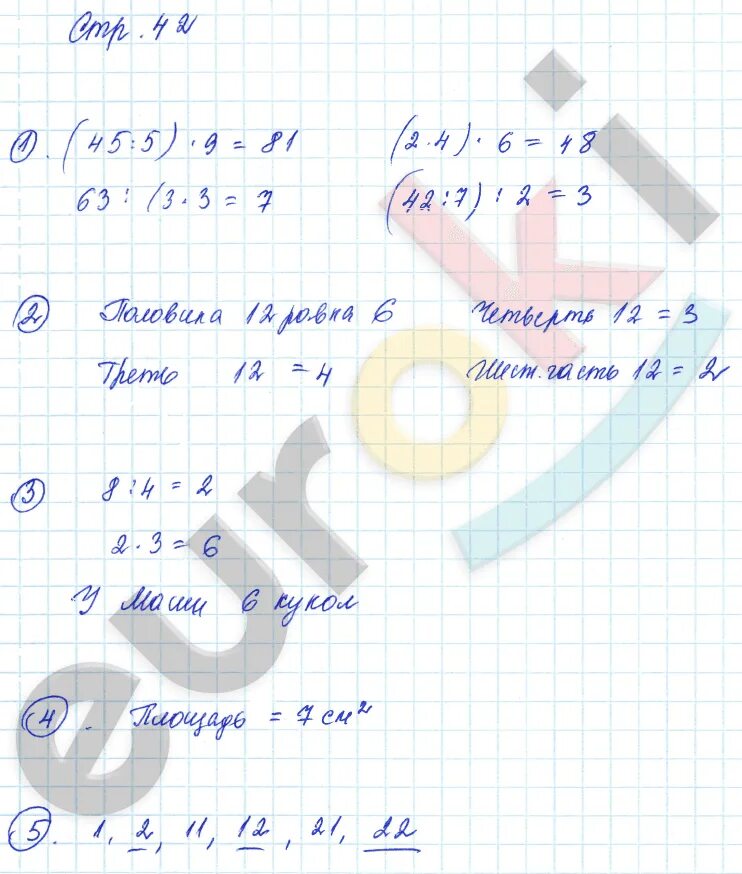 Стр. 42
1. (45:5) · 9 = 81 (2·4) · 6 = 48
63 : (3·3 = 7 (42:7) : 2 = 3
2 Половина 12 равна 6 Четверть 12 = 3
Треть 12 = 4 Шест. часть 12 = 2
3 8:4 = 2
2·3 = 6
У Маши 6 кукол
4. Площадь = 7 см²
5. 1, 2, 11, 12, 21, 22
euroki